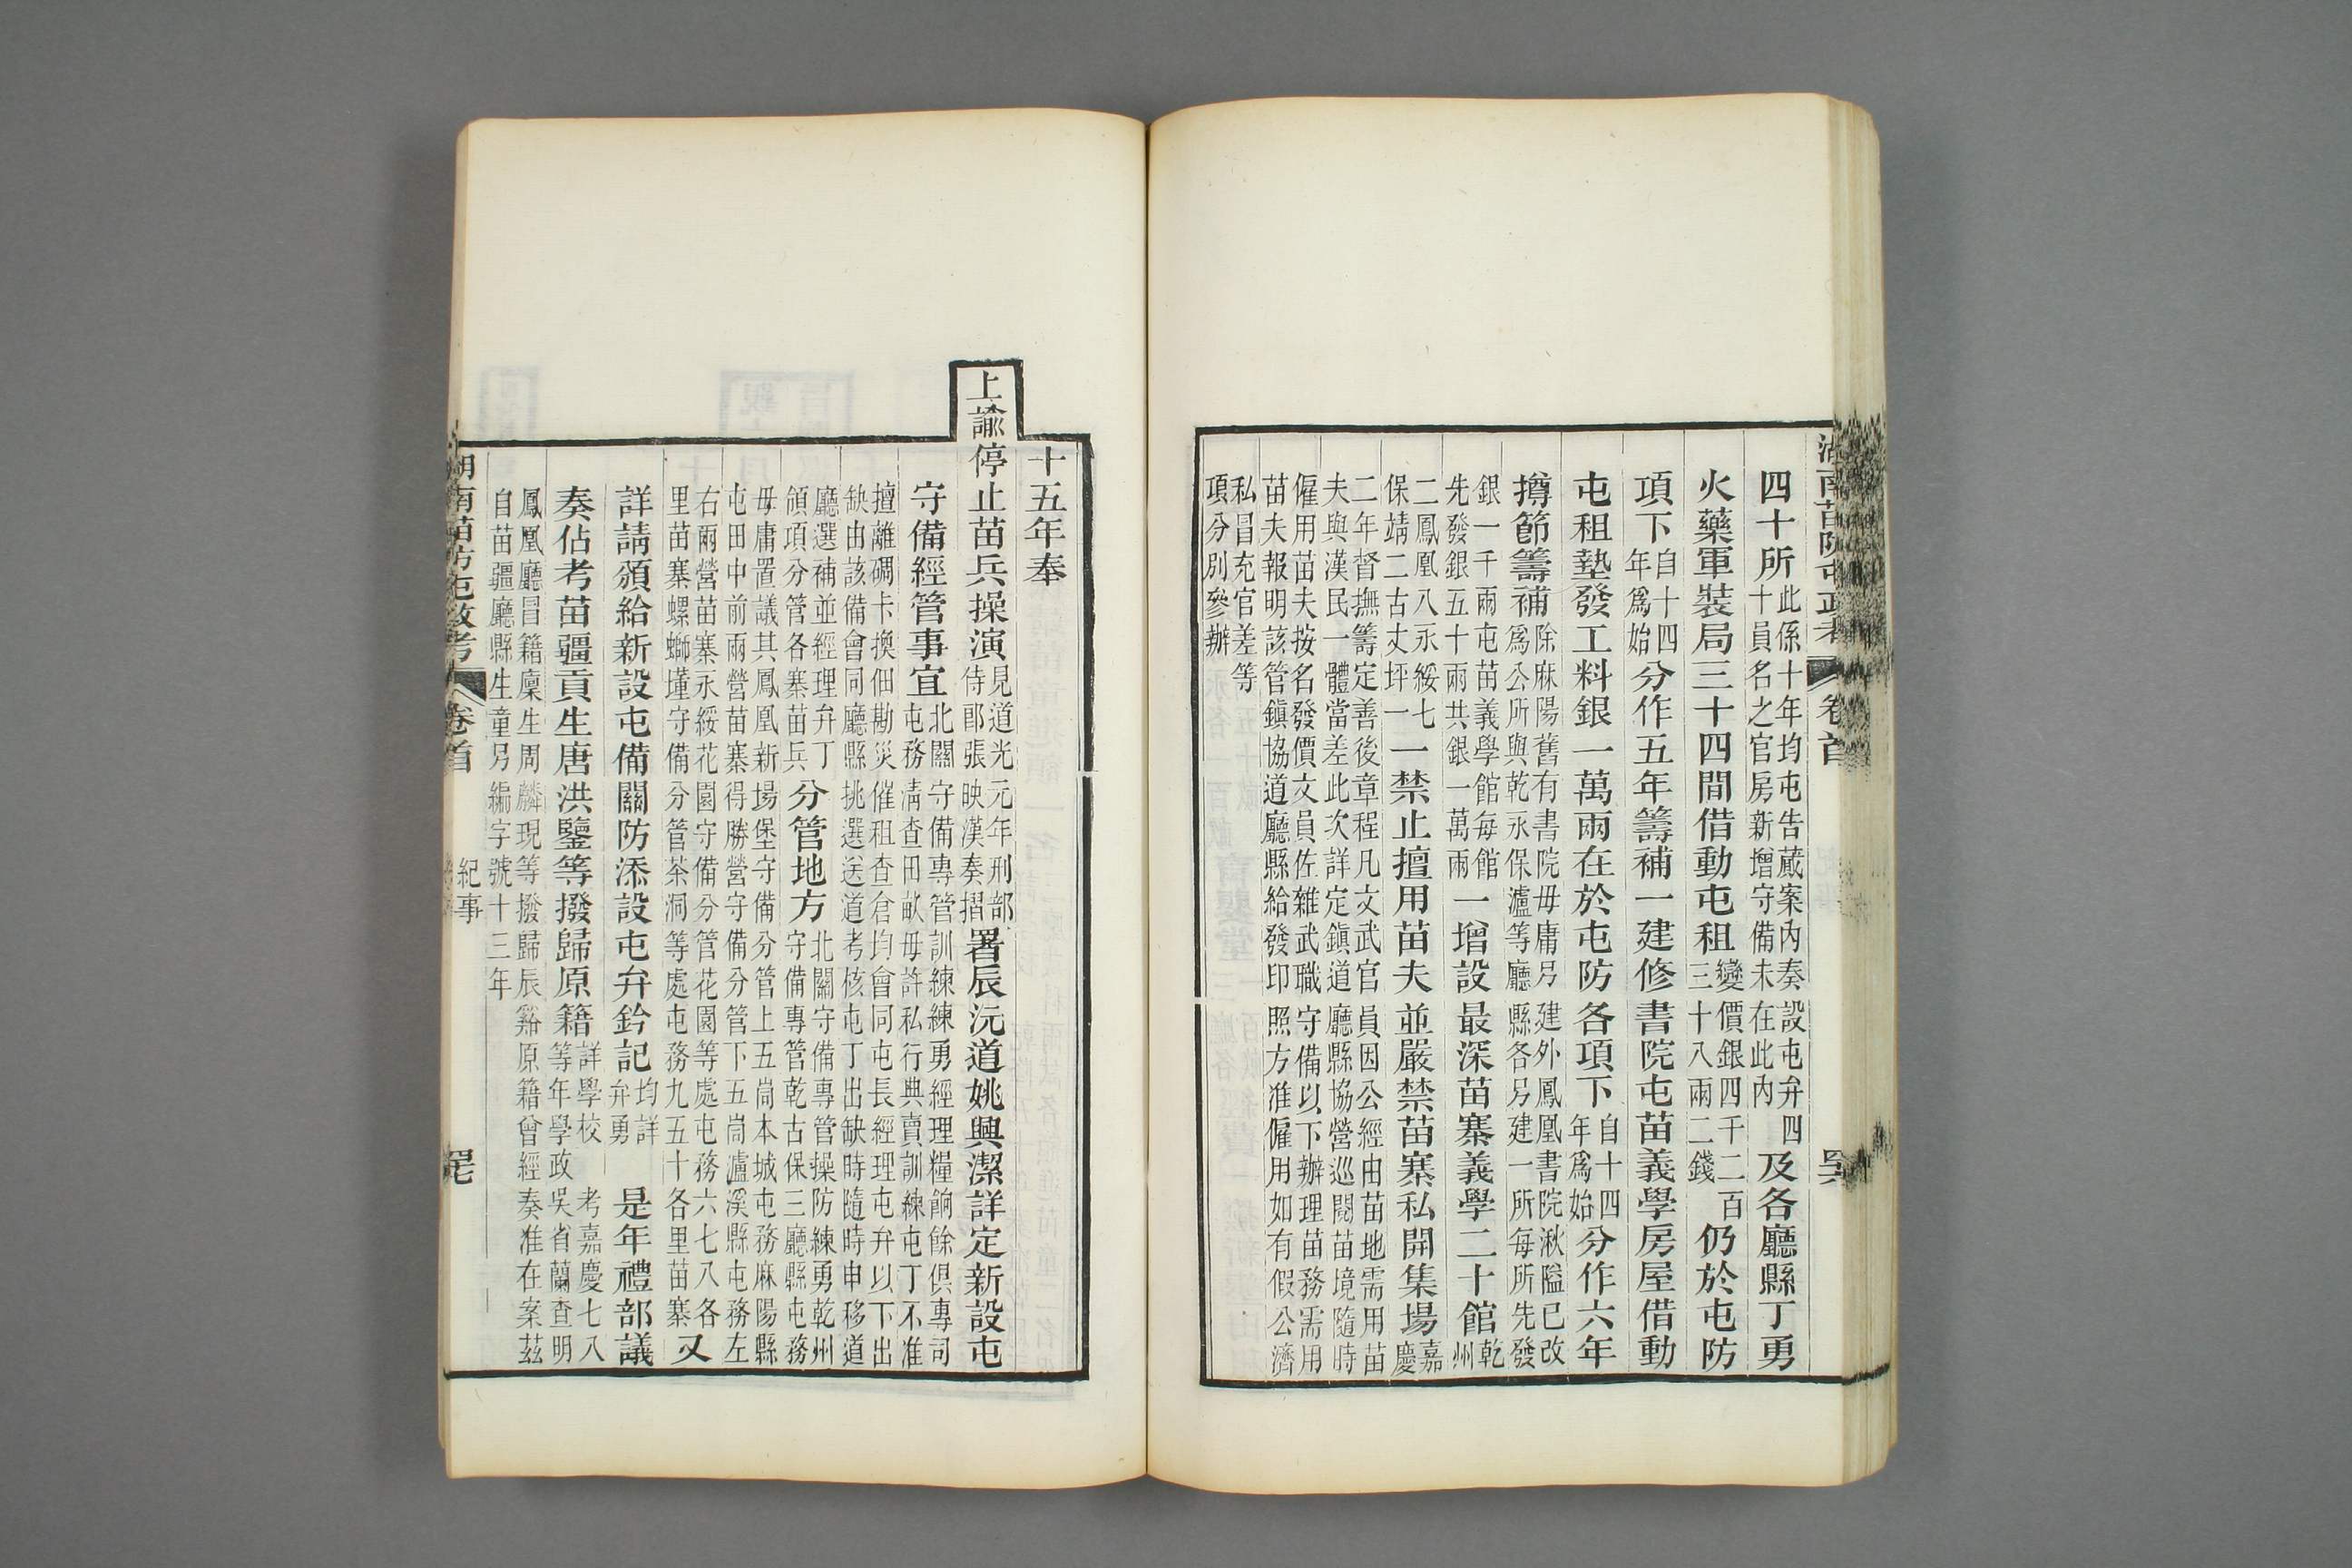 湖南苗防屯政考 卷首 四六
四十所
此係十年均屯告蕆案內奏設屯弁四
十員名之官房新增守備未在此內
及各廳縣丁勇
火藥軍裝局三十四間借動屯租
變價銀四千二百
三十八兩二錢
仍於屯防
項下
自十四
年爲始
分作五年籌補一建修書院屯苗義學房屋借動
屯租墊發工料銀一萬兩在於屯防各項下
自十四
年爲始
分作六年
撙節籌補
除麻陽舊有書院毋庸另建外鳳凰書院湫隘已改
爲公所與乾永保瀘等廳縣各另建一所每所先發
銀一千兩屯苗義學館每館
先發銀五十兩共銀一萬兩
一增設最深苗寨義學二十館
乾
州
二鳳凰八永綏七
保靖二古丈坪一
一禁止擅用苗夫並嚴禁苗寨私開集場
嘉
慶
二年督撫籌定善後章程凡文武官員因公經由苗地需用苗
夫與漢民一體當差此次詳定鎮道廳縣協營巡閱苗境隨時
僱用苗夫按名發價文員佐雜武職守備以下辦理苗務需用
苗夫報明該管鎮協道廳縣給發印照方准僱用如有假公濟
私冒充官差等
項分別參辦
十五年奉
上諭停止苗兵操演
見道光元年刑部
侍郎張映漢奏摺
署辰沅道姚興潔詳定新設屯
守備經管事宜
北關守備專管訓練練勇經理糧餉餘俱專司
屯務清查田畝毋許私行典賣訓練屯丁不准
擅離碉卡換佃勘災催租查倉均會同屯長經理屯弁以下出
缺由該備會同廳縣挑選送道考核屯丁出缺時隨時申移道
廳選補並經理弁丁
領項分管各寨苗兵
分管地方
北關守備專管操防練勇乾州
守備專管乾古保三廳縣屯務
毋庸置議其鳳凰新場堡守備分管上五峝本城屯務麻陽縣
屯田中前兩營苗寨得勝營守備分管下五峝瀘溪縣屯務左
右兩營苗寨永綏花園守備分管花園等處屯務六七八各
里苗寨螺螄墐守備分管茶洞等處屯務九五十各里苗寨
又
詳請頒給新設屯備關防添設屯弁鈐記
均詳
弁勇
是年禮部議
奏佔考苗疆貢生唐洪鑒等撥歸原籍
詳學校考嘉慶七八
等年學政吳省蘭查明
鳳凰廳冒籍廩生周麟現等撥歸辰谿原籍曾經奏准在案茲
自苗疆廳縣生童另編字號十三年
湖南苗防屯政考 卷首 紀事 四七